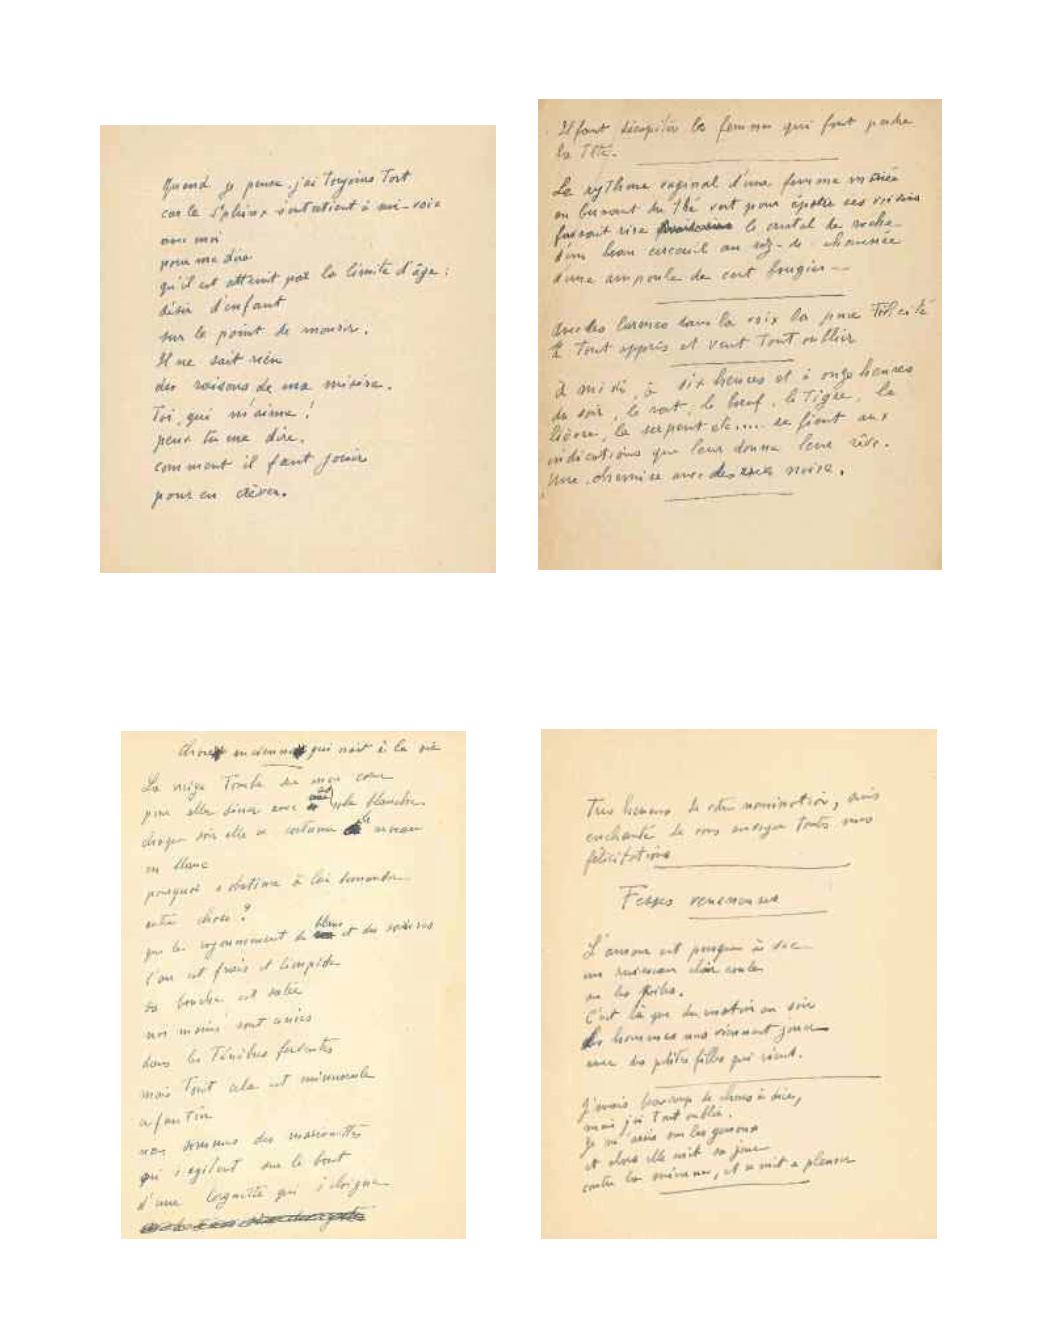 Quand je pense j'ai toujours tort
car le Sphinx s'entretient à mi-voix
avec moi
pour me dire
qu'il est atteint par la limite d'âge :
désir d'enfant
sur le point de mourir.
Il ne sait rien
des raisons de ma misère.
Toi, qui m'aime !
peux tu me dire,
comment il faut jouir
pour en crever.
Il faut décapiter la femme qui fait perdre
la tête.
Le rythme vaginal d'une femme mariée
en buvant du thé vert pour épater ses voisins
faisait rire le cristal de roche
d'un beau cercueil au rez-de chaussée
d'une ampoule de cent bougies --
Avec des larmes dans la voix la pure
a tout appris et veut tout oublier
à midi, à six heures et à onze heures
du soir, le rat, le bœuf, le tigre, le
lièvre, le serpent etc.... se fient aux
indications que leur donne leur rêve.
Une chemise avec des noirs.
qui naît à la vie
La neige tombe sur mon cœur
pour elle dîner avec blanche
chaque soir elle se costume nouveau
en blanc
pourquoi s'obstiner à lui demander
autre chose ?
que le rayonnement du blanc et des
l'air est frais et limpide
sa bouche est salée
nos mains sont
dans les ténèbres
mais tout cela est minuscule
enfantin
nous sommes des marionnettes
qui s'agitent sur le bout
d'une lorgnette qui s'éloigne
Très heureux de votre nomination, suis
enchanté de vous envoyer toutes mes
félicitations
Fesses
L'amour est presque à sec
un ruisseau clair coule
sur les poils.
C'est là que du matin au soir
les hommes nus viennent jouer
avec des ptites filles qui rient.
J'avais beaucoup de choses à dire,
mais j'ai tout oublié.
Je m'assis sur les genoux
et alors elle mit sa joue
contre la mienne, et se mit a pleurer